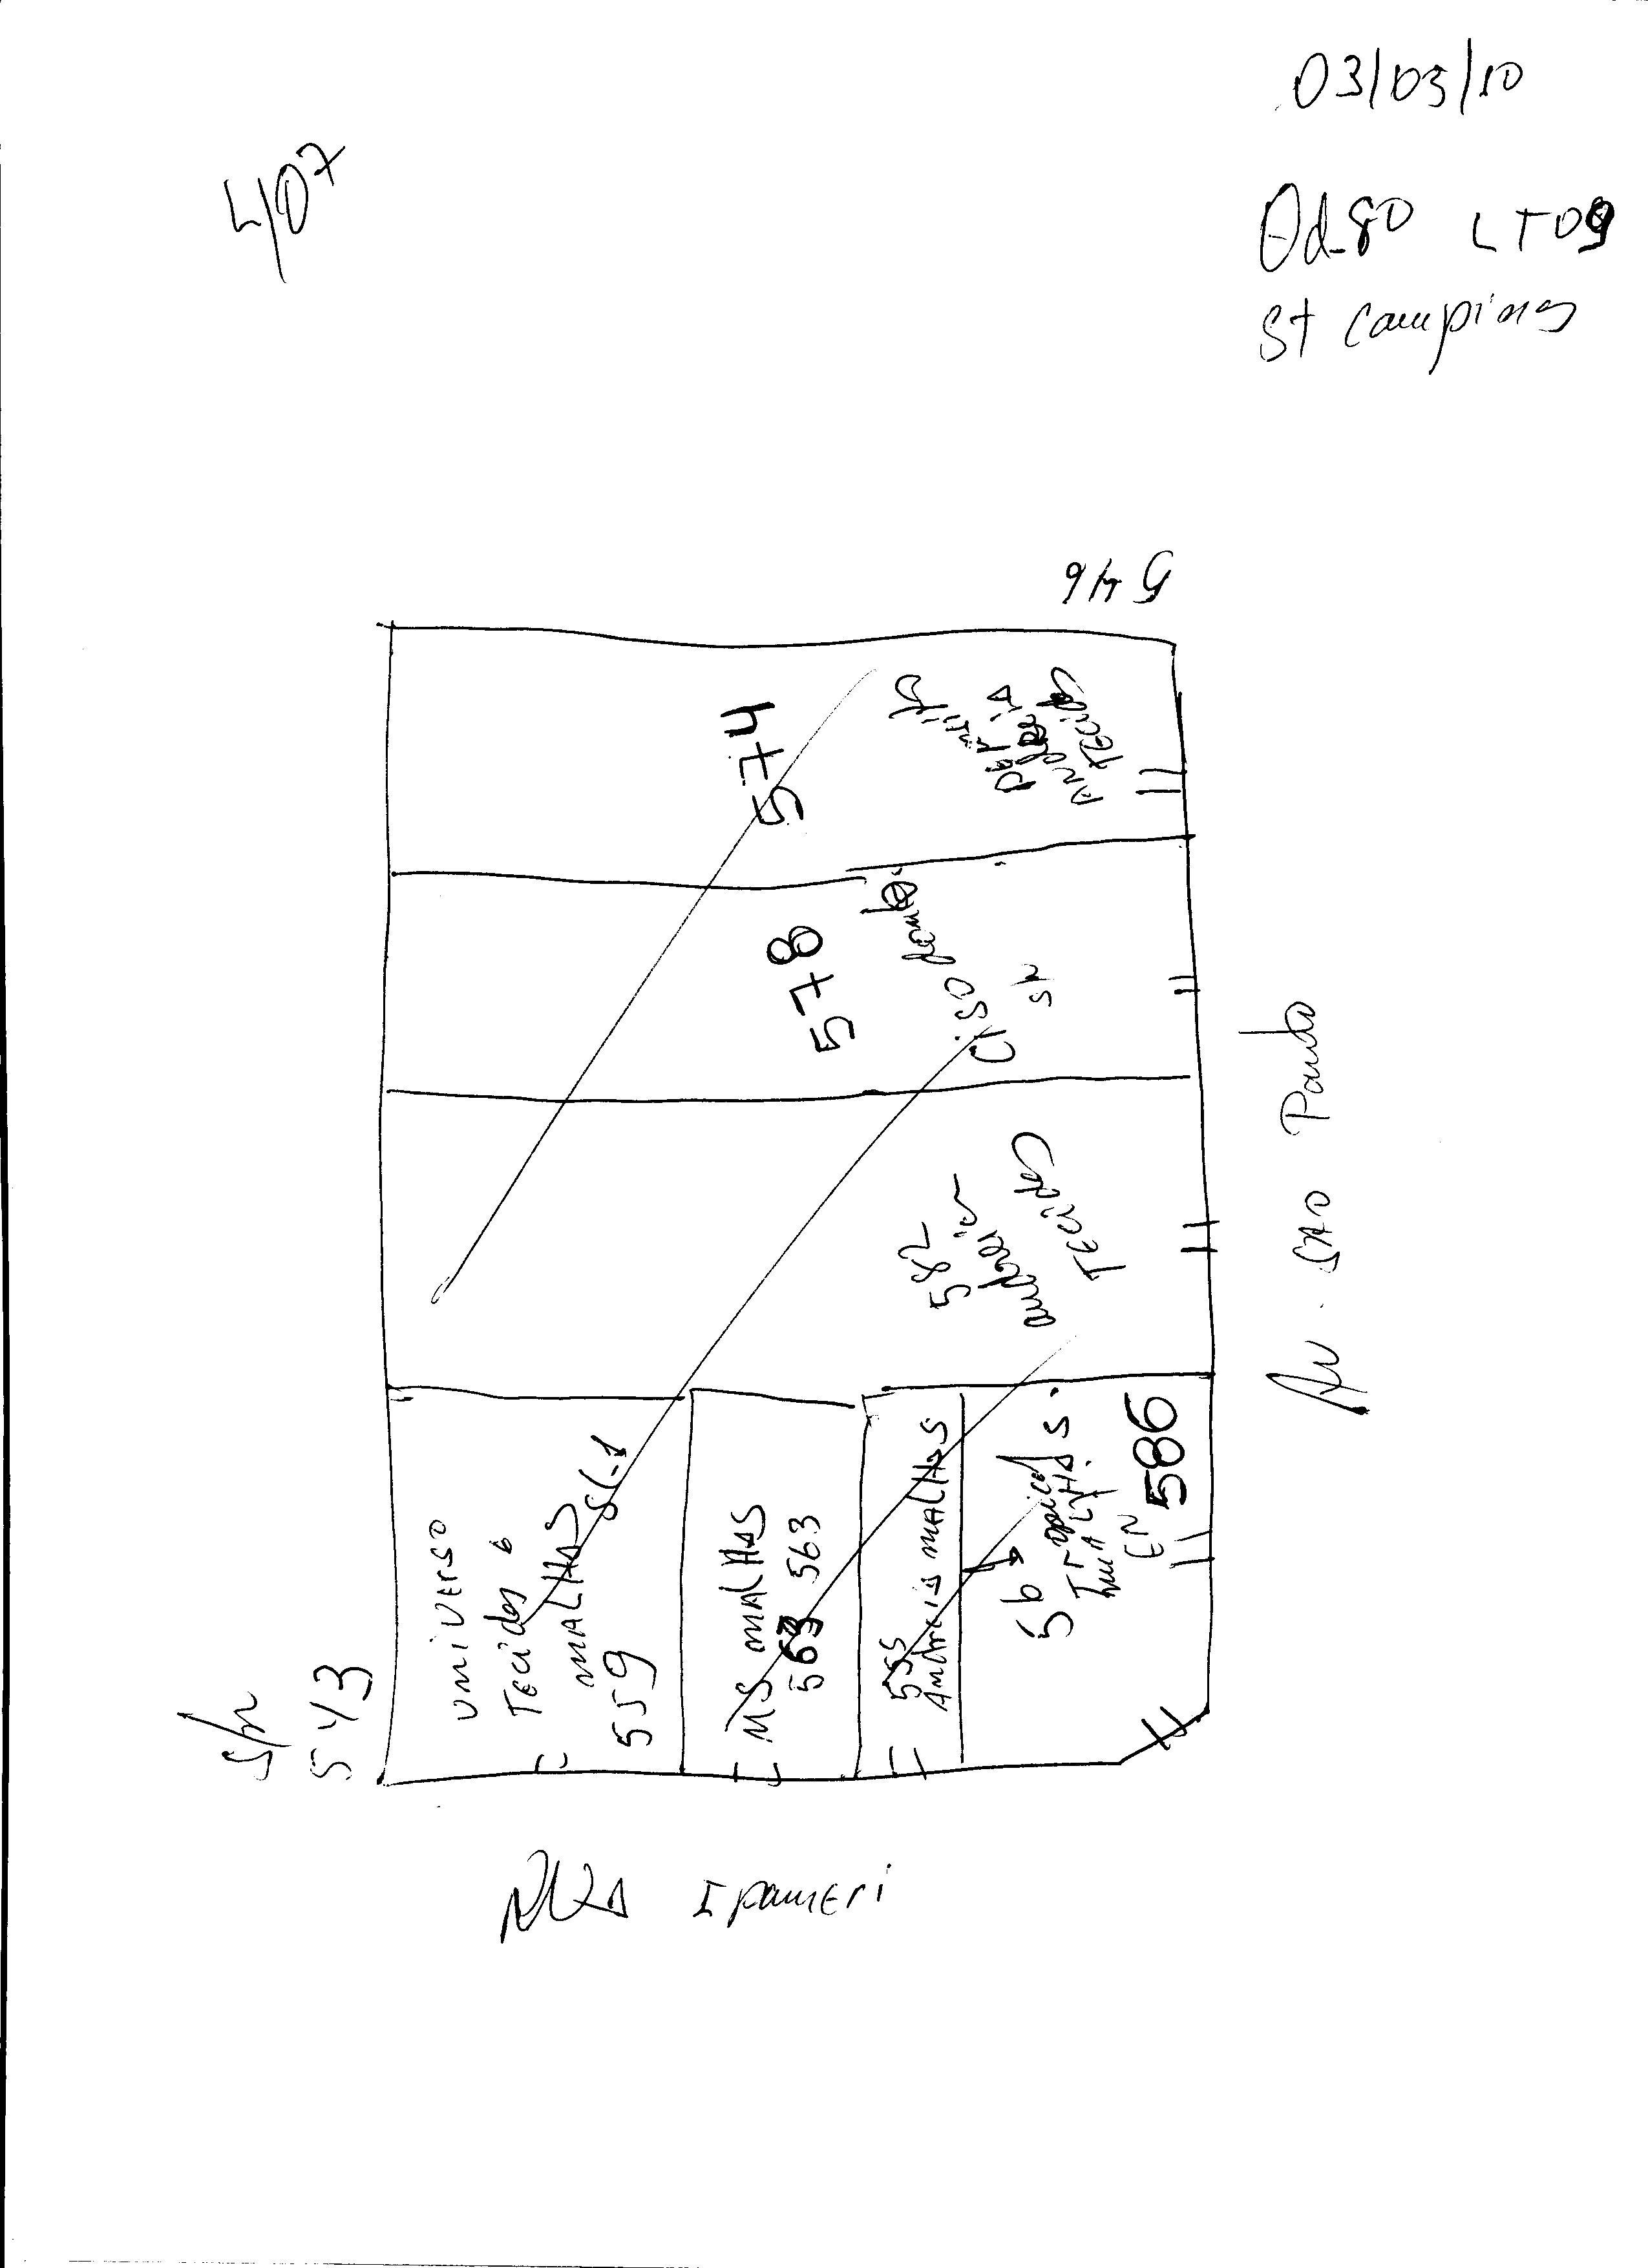 03/03/10
407
Qd-80 LT09
St Campinas
546
574
Andreia
Tecidos
578
SN
582
andreia
Tecidos
Av. SAO Paulo
UNIVERSO
Tecidos e
MALHAS SL-1
559
MS MALHAS
563 563
555
Andreia MALHAS
Tropical
MALHAS
EN 586
S/N
543
RUA IPAMERI